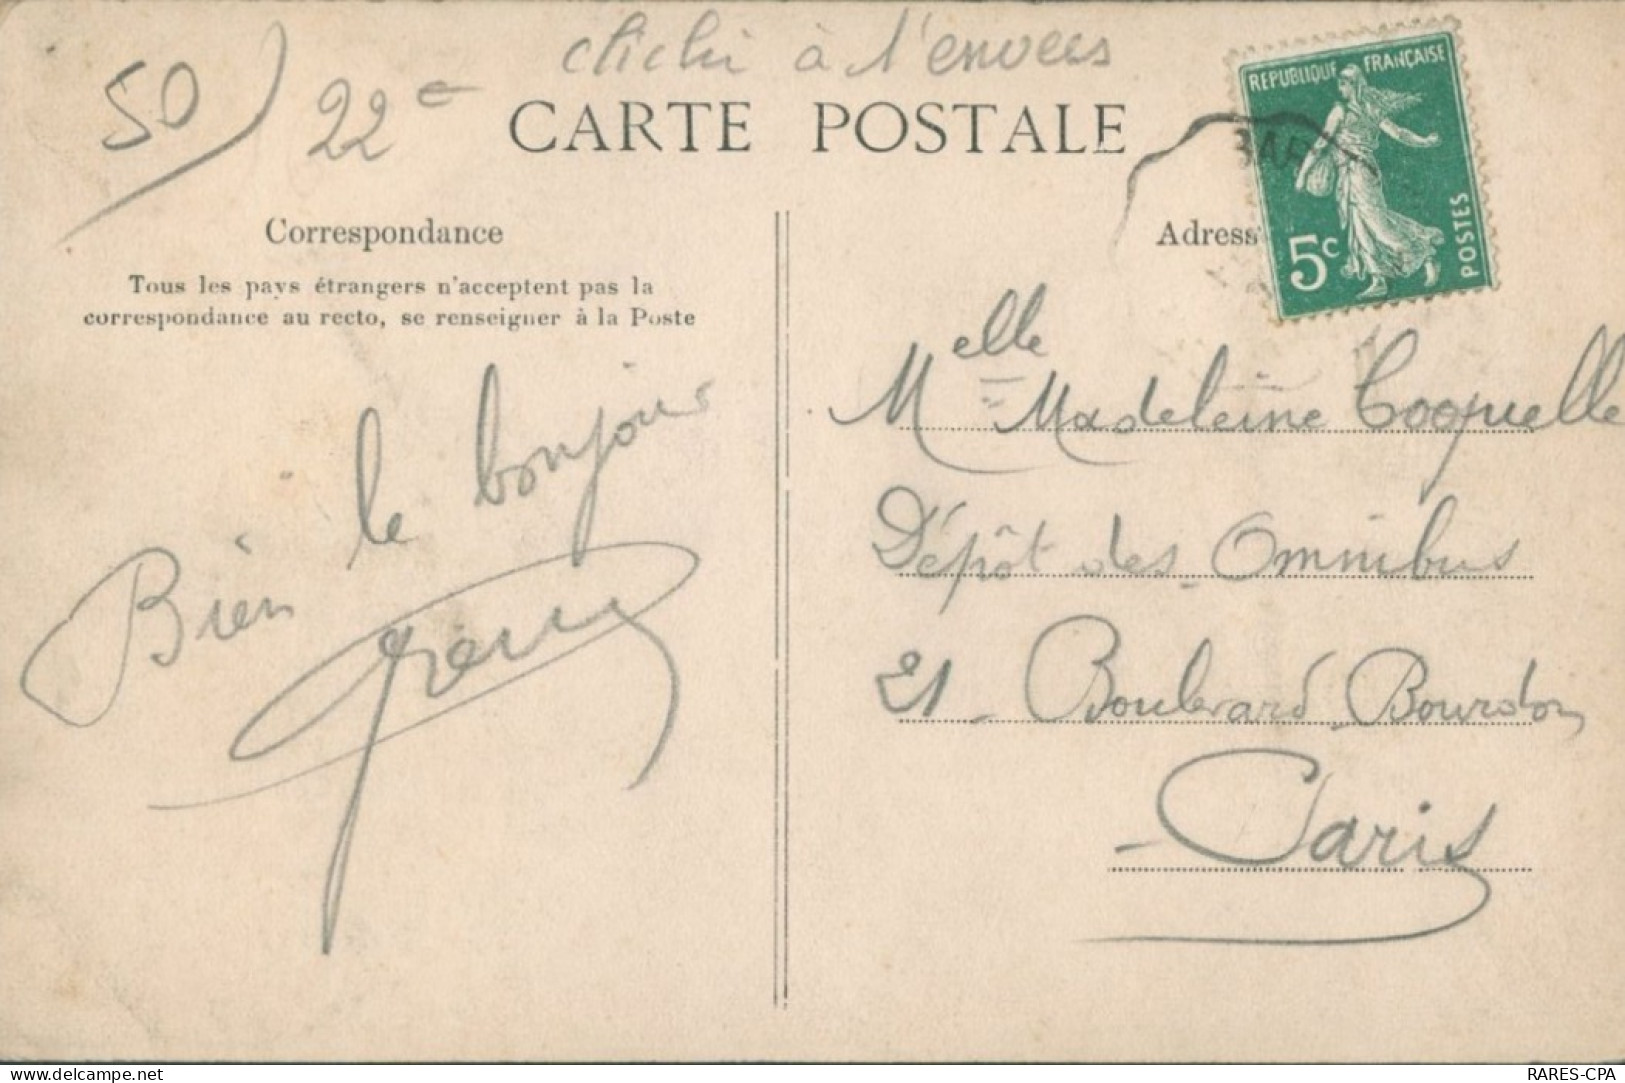 50
22e
cliché à l'envers
CARTE POSTALE
RÉPUBLIQUE FRANÇAISE
5c
POSTES
Correspondance
Tous les pays étrangers n'acceptent pas la
correspondance au recto, se renseigner à la Poste
Bien le bonjour
Adress
Melle Madeleine Coquelle
Dépôt des Omnibus
21 - Boulevard Bourdon
- Paris
delcampe.net
RARES-CPA